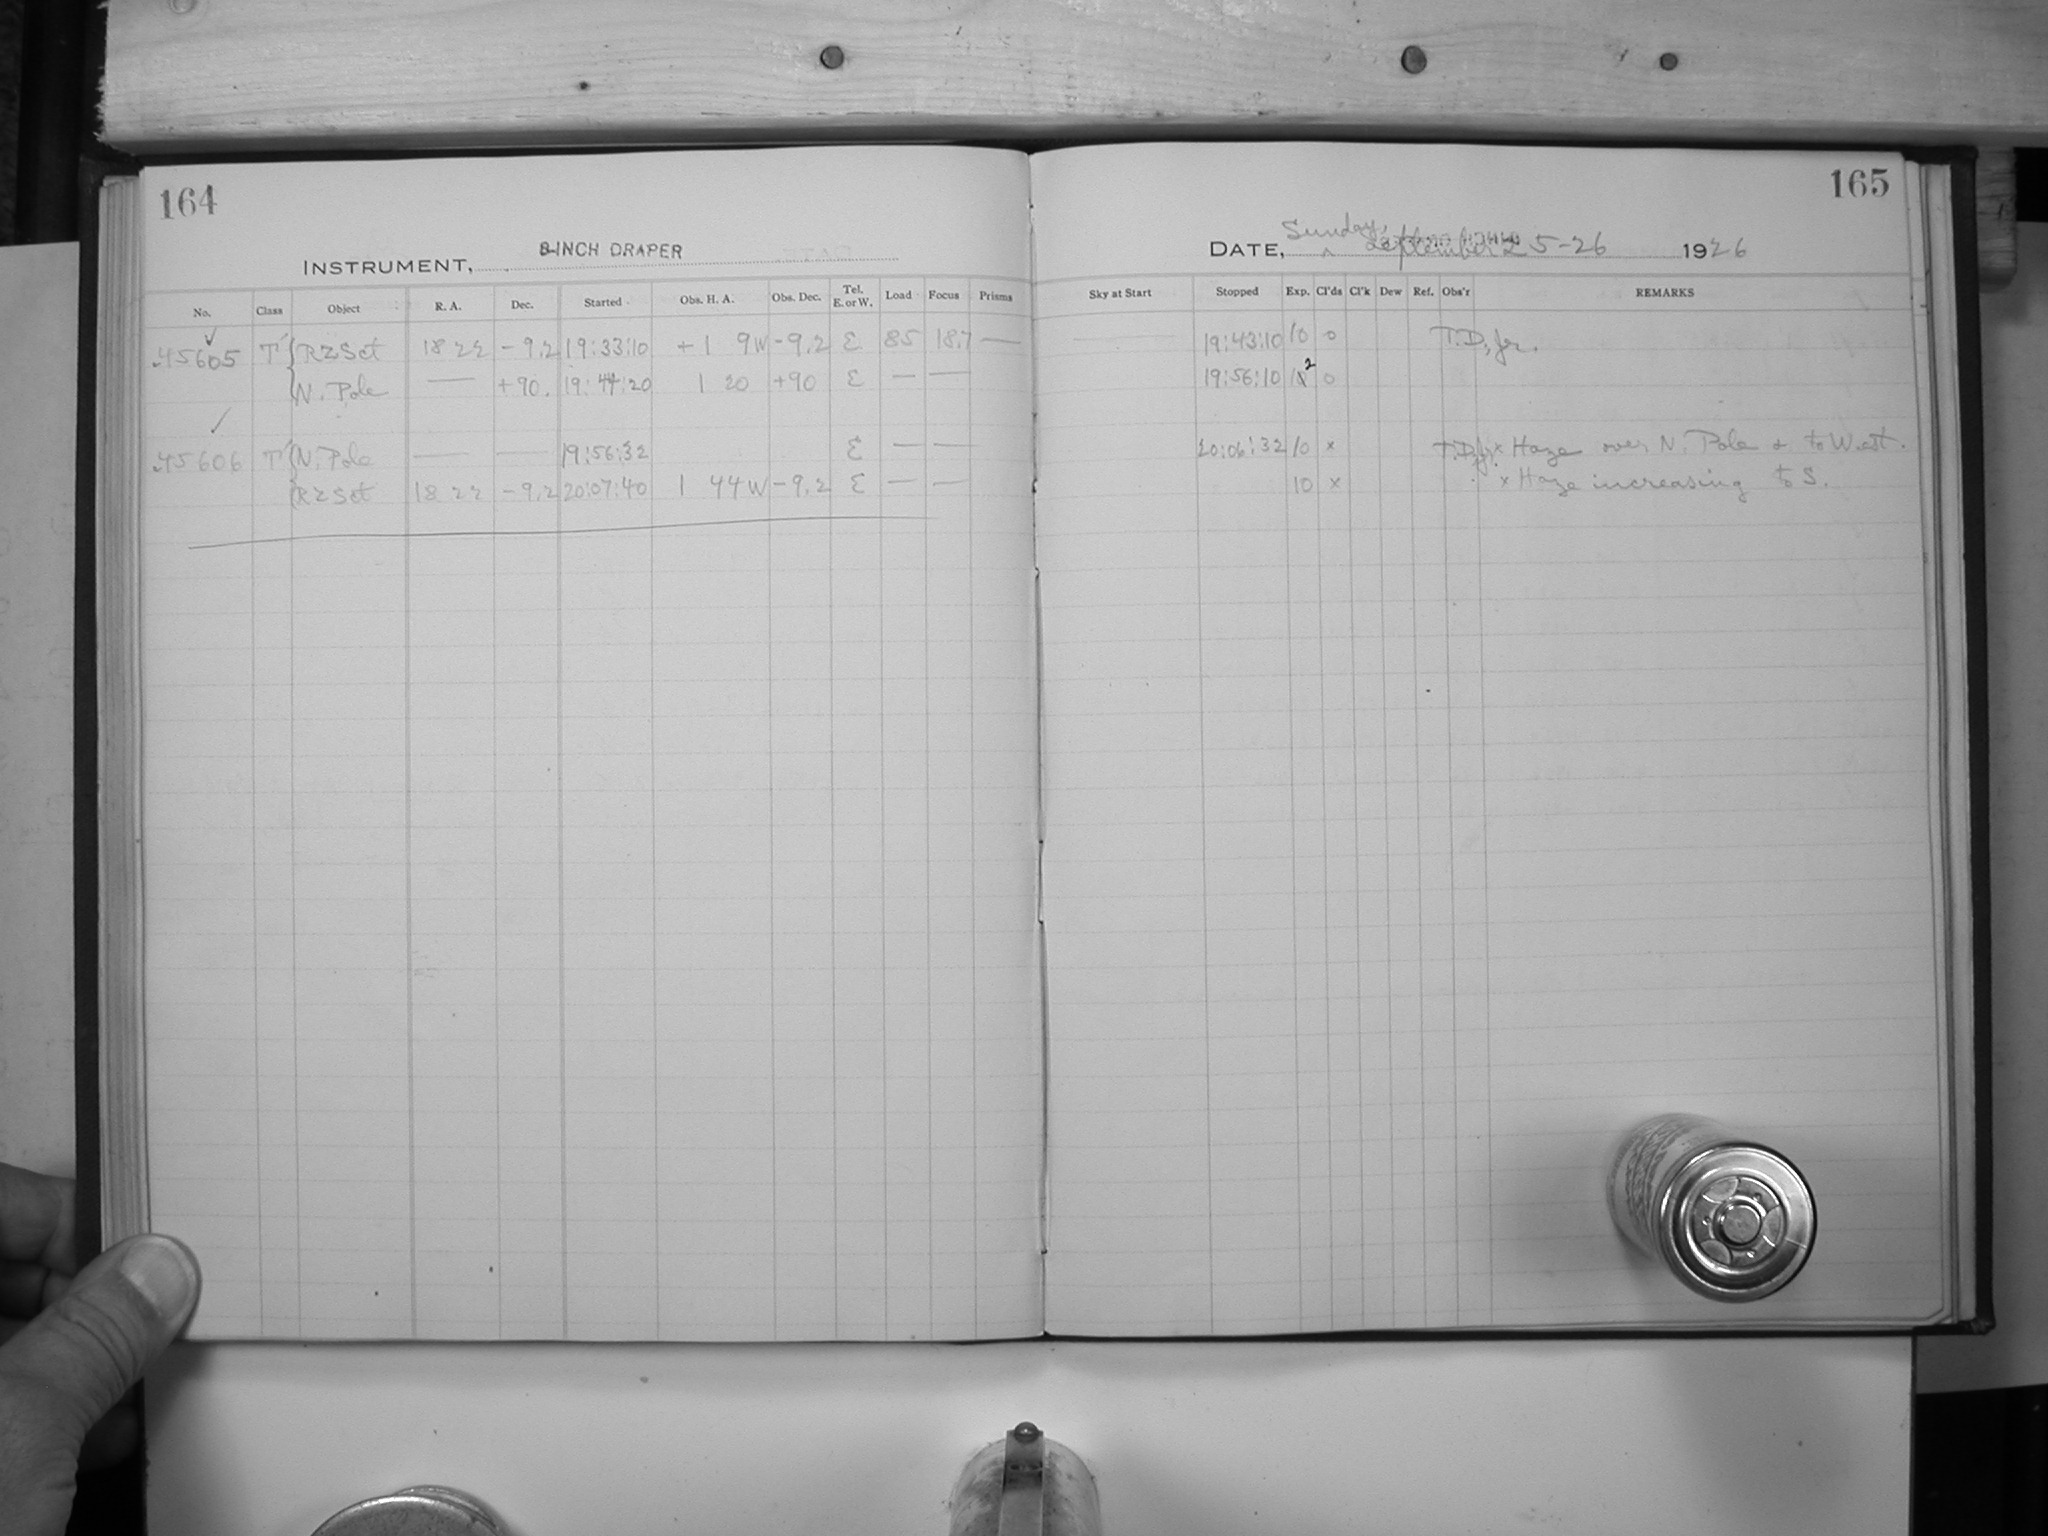 164
INSTRUMENT, 8-INCH DRAPER
No. Class Object R. A. Dec. Started Obs. H. A. Obs. Dec. Tel. E. or W. Load Focus Prisms
45605 T' RZ Sct 18 22 -9.2 19:33:10 +1 9W -9.2 E 85 18.7 —
N. Pole — +90. 19:44:20 1 20 +90 E — —
45606 T' N. Pole — — 19:56:32 E — —
RZ Sct 18 22 -9.2 20:07:40 1 44W -9.2 E — —
165
Sunday,
DATE, September 25-26 1926
Sky at Start Stopped Exp. Cl'ds Cl'k Dew Ref. Obs'r REMARKS
— 19:43:10 10 0 T.D., Jr.
19:56:10 12 0
20:06:32 10 x T.D.Jr. x Haze over N. Pole & to West.
10 x x Haze increasing to S.